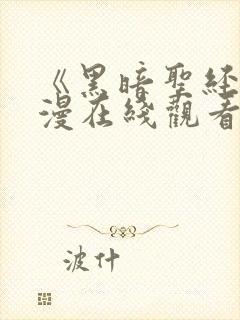 《黑暗聖経
漫在綫觀看
波什